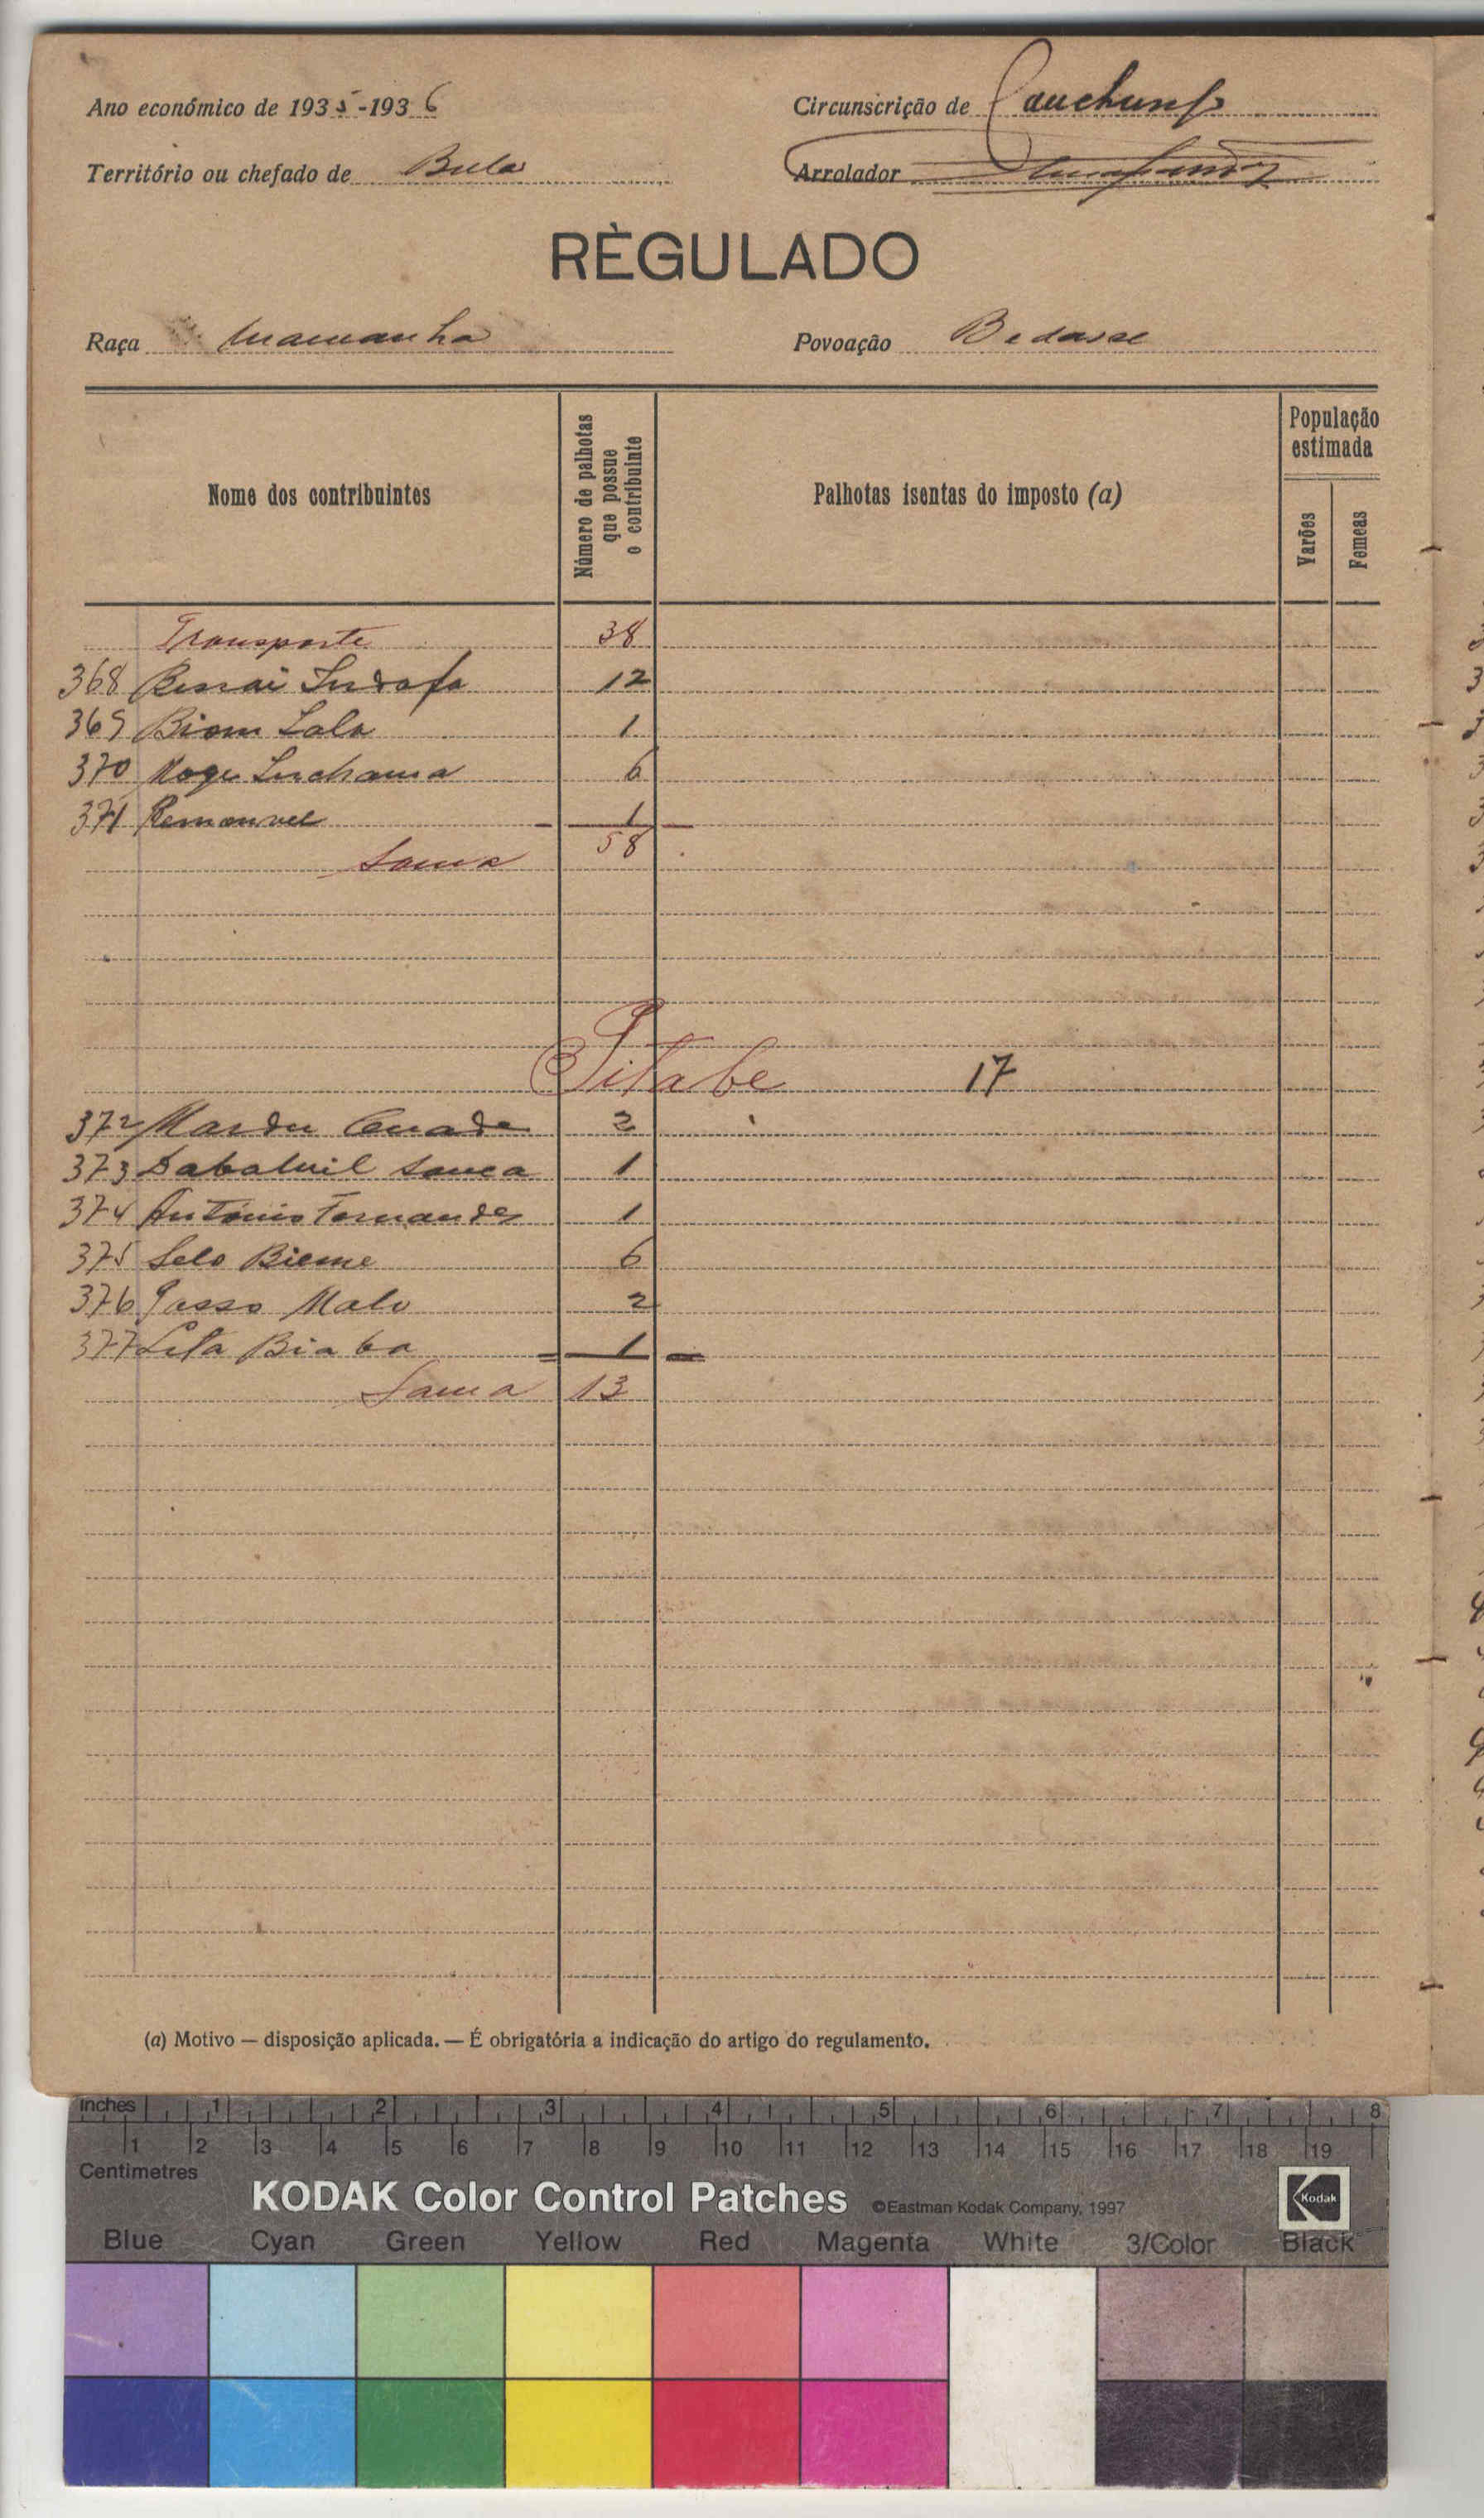 Ano económico de 1935-1936
Circunscrição de Canchungo
Território ou chefado de Bula
Arrolador
RÈGULADO
Raça Mamanha
Povoação Bedasse
Nome dos contribuintes
Número de palhotas que possue o contribuinte
Palhotas isentas do imposto (a)
População estimada
Varões
Femeas
Transporte 38
368 12
369 Biom Lala 1
370 6
371 1
Soma 58
Pitabe 17
372 2
373 1
374 António Fernandes 1
375 Selo Bieme 6
376 Passo Malo 2
377 Leta Biaba 1
Soma 13
(a) Motivo — disposição aplicada. — É obrigatória a indicação do artigo do regulamento.
Inches 1 2 3 4 5 6 7 8
1 2 3 4 5 6 7 8 9 10 11 12 13 14 15 16 17 18 19
Centimetres
KODAK Color Control Patches ©Eastman Kodak Company, 1997 Kodak
Blue Cyan Green Yellow Red Magenta White 3/Color Black